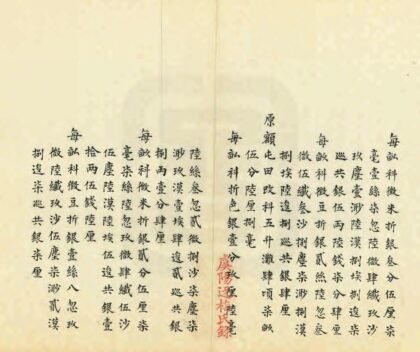 每畝科徵米折銀叁分伍厘柒
毫壹絲柒忽陸微肆纖玖沙
玖塵壹渺陸漠捌埃捌逡
巡共銀伍兩陸錢柒分肆厘
每畝科徵豆折銀貳然陸忽叁
微伍纖叁沙捌塵柒渺捌漠
捌埃陸逡捌巡共銀肆厘
原額屯田改科五升灘肆頃柒畝
伍分陸厘捌毫
每畝科折色銀壹分玖厘陸毫
陸絲叁忽貳微捌沙柒塵柒
渺玖漠壹埃肆逡貳巡共銀
捌兩壹分肆厘
每畝科徵米折銀貳分伍厘柒
毫柒絲陸忽玖微肆纖伍沙
伍塵陸漠陸埃伍逡共銀壹
拾兩伍錢陸厘
每畝科徵豆折銀壹絲八忽玖
微陸纖玖沙伍塵柒渺貳漠
捌逡柒巡共銀柒厘